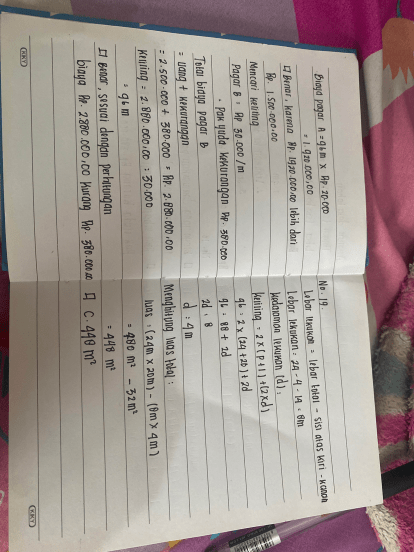 Biaya pagar A = 96 m x Rp. 20.000
= 1.920.000,00
□ Benar, karena Rp. 1.920.000,00 lebih dari
Rp. 1.500.000,00
Mencari keliling
Pagar B = Rp 30.000 /m
• Pak yuda kekurangan Rp 380.000
Total biaya pagar B
= uang + kekurangan
= 2.500.000 + 380.000 = Rp. 2.880.000,00
Keliling = 2.880.000,00 : 30.000
= 96 m
□ Benar, sesuai dengan perhitungan
biaya Rp. 2.880.000,00 kurang Rp. 380.000,00
KIKY
No. 19.
Lebar lekukan = lebar total - sisi atas kiri - kanan
Lebar lekukan = 24 - 4 - 14 = 8m
Kedalaman lekukan (d) :
keliling = 2 x (p + l) + (2 x d)
96 = 2 x (24 + 20) + 2d
96 = 88 + 2d
2d = 8
d = 4 m
Menghitung luas total :
luas = (24m x 20m) - (8m x 4m)
= 480 m² - 32 m²
= 448 m²
□ C. 448 m²
KIKY